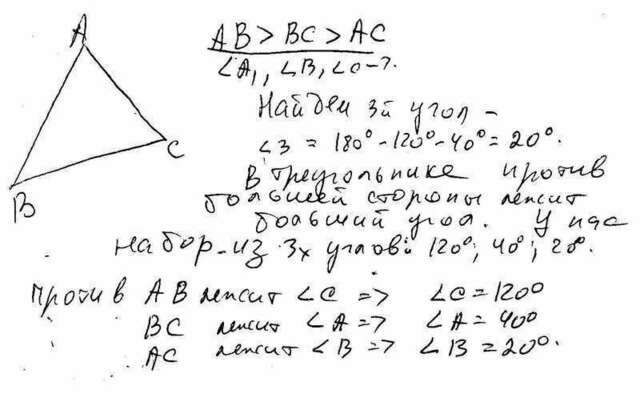 A
C
B
AB > BC > AC
∠A, ∠B, ∠C - ?
Найдем 3й угол -
∠3 = 180° - 120° - 40° = 20°.
В треугольнике против
большей стороны лежит
больший угол. У нас
набор из 3х углов: 120°; 40°; 20°.
Против AB лежит ∠C => ∠C = 120°
BC лежит ∠A => ∠A = 40°
AC лежит ∠B => ∠B = 20°.